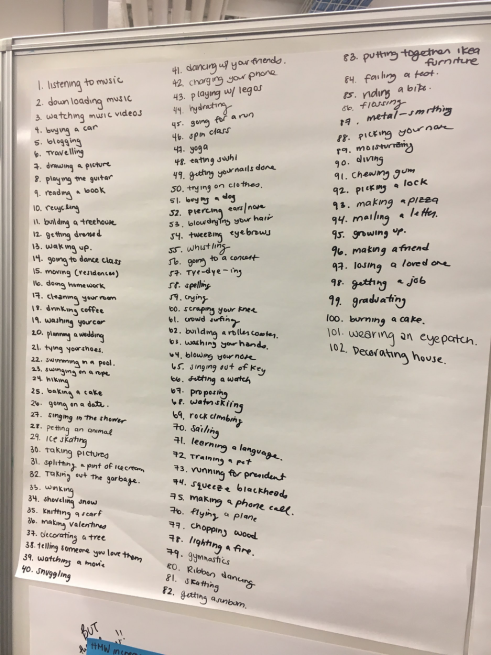 1. listening to music
2. downloading music
3. watching music videos
4. buying a car
5. blogging
6. travelling
7. drawing a picture
8. playing the guitar
9. reading a book
10. recycling
11. building a treehouse
12. getting dressed
13. waking up.
14. going to dance class
15. moving (residences)
16. doing homework
17. cleaning your room
18. drinking coffee
19. washing your car
20. planning a wedding
21. tying your shoes.
22. swimming in a pool.
23. swinging on a rope
24. hiking
25. baking a cake
26. going on a date.
27. singing in the shower
28. petting an animal
29. ice skating
30. taking pictures
31. splitting a pint of icecream
32. Taking out the garbage.
33. winking
34. shoveling snow
35. knitting a scarf
36. making valentines
37. Decorating a tree
38. telling someone you love them
39. watching a movie
40. snuggling
41. dancing w/ your friends.
42. charging your phone
43. playing w/ legos
44. hydrating
45. going for a run
46. spin class
47. yoga
48. eating sushi
49. getting your nails done
50. trying on clothes.
51. buying a dog
52. piercing ears/nose
53. blowdrying your hair
54. tweezing eyebrows
55. whistling
56. going to a concert
57. Tye-dye-ing
58. spelling
59. crying
60. scraping your knee
61. crowd surfing
62. building a rollercoaster.
63. washing your hands.
64. blowing your nose
65. singing out of key
66. getting a watch
67. proposing
68. waterskiing
69. rock climbing
70. sailing
71. learning a language.
72. Training a pet
73. running for president
74. squeeze blackheads
75. making a phone call.
76. flying a plane
77. chopping wood
78. lighting a fire.
79. gymnastics
80. Ribbon dancing
81. skating
82. getting a sunburn.
83. putting together ikea
furniture
84. failing a test.
85. riding a bike.
86. flossing
87. metal-smithing
88. picking your nose
89. moisturizing
90. diving
91. chewing gum
92. picking a lock
93. making a pizza
94. mailing a letter.
95. growing up.
96. making a friend
97. losing a loved one
98. getting a job
99. graduating
100. burning a cake.
101. wearing an eyepatch.
102. Decorating house.
BUT
HMW